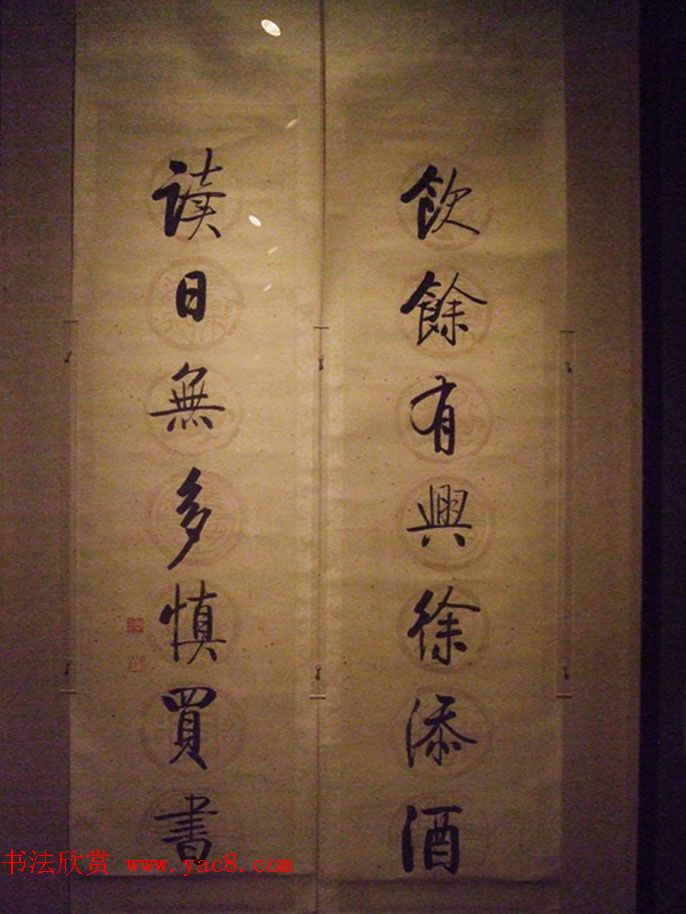 飲餘有興徐添酒
读日無多慎買書
书法欣赏 www.yac8.com